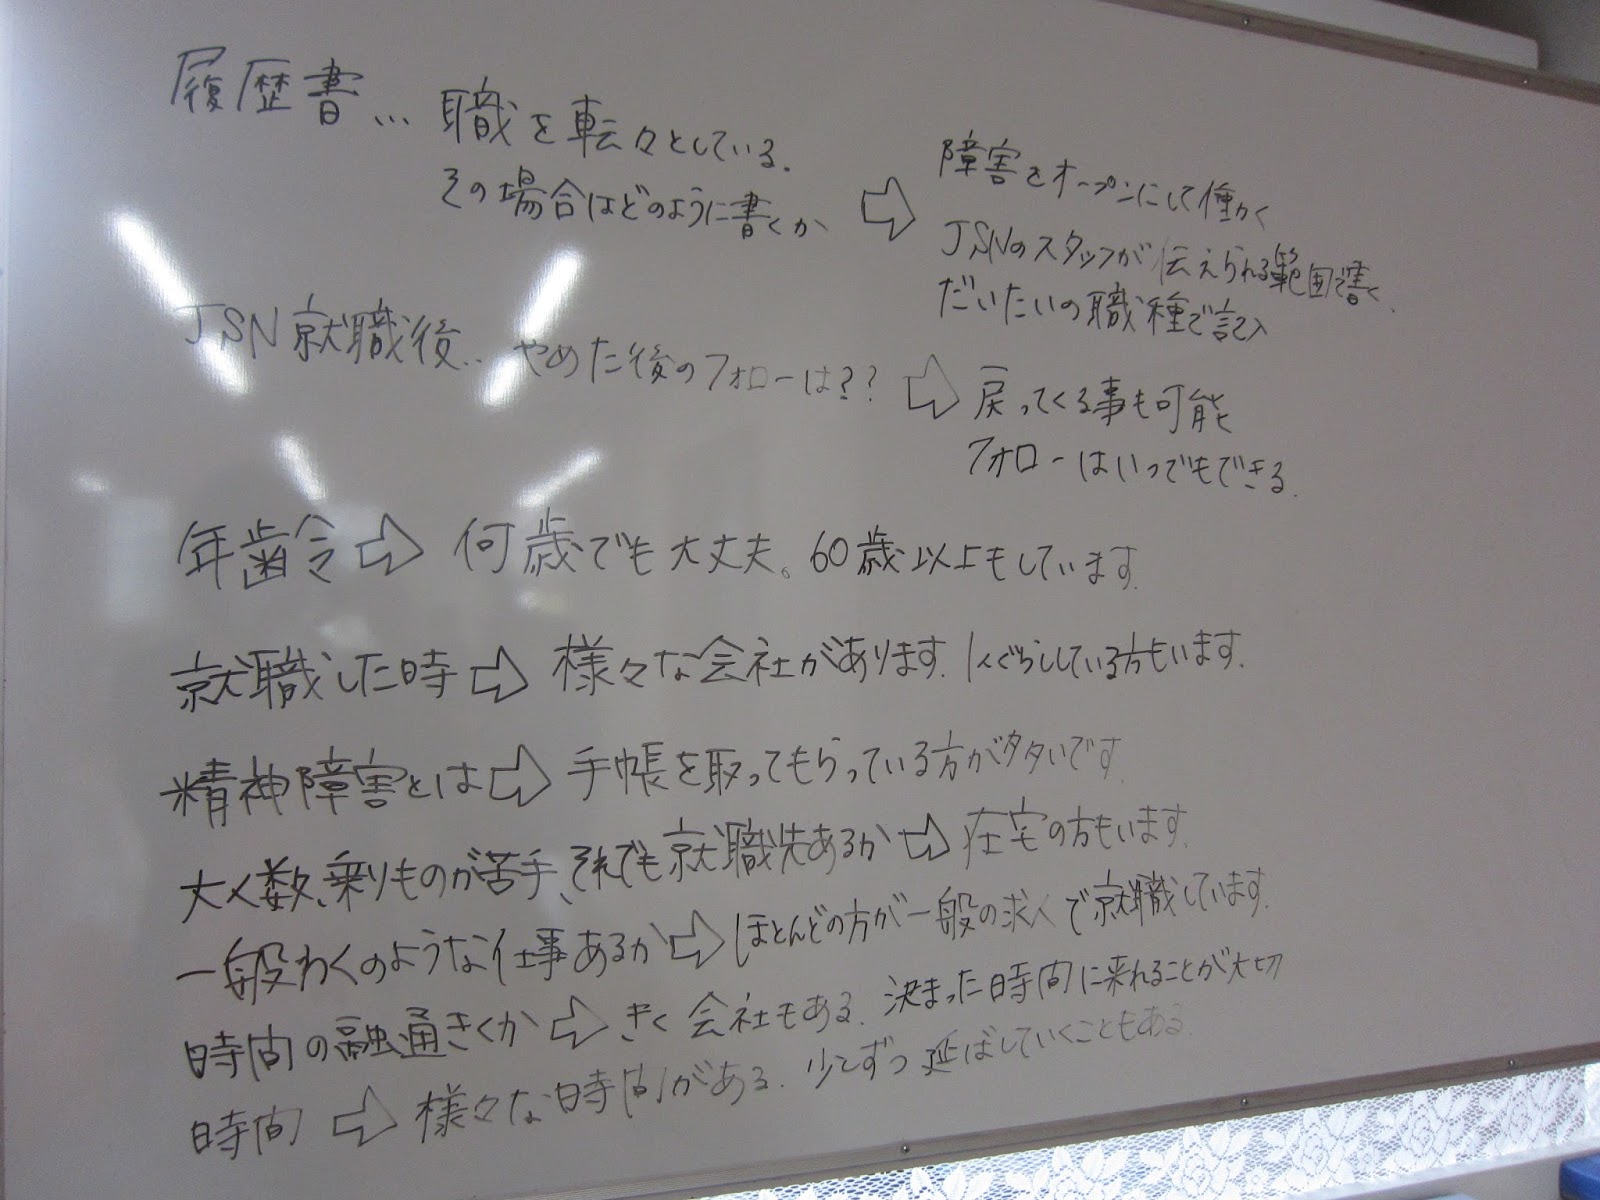 履歴書… 職を転々としている.
その場合はどのように書くか ⇨ 障害をオープンにして働く
JSNのスタッフが伝えられる範囲で書く.
だいたいの職種で記入
JSN就職後… やめた後のフォローは?? ⇨ 戻ってくる事も可能
フォローはいつでもできる.
年齢 ⇨ 何歳でも大丈夫。60歳以上もしています.
就職した時 ⇨ 様々な会社があります. 1人ぐらししている方もいます.
精神障害とは ⇨ 手帳を取ってもらっている方が多いです.
大人数、乗りものが苦手、それでも就職先あるか ⇨ 在宅の方もいます.
一般わくのような仕事あるか ⇨ ほとんどの方が一般の求人で就職しています.
時間の融通きくか ⇨ きく会社もある. 決まった時間に来れることが大切
時間 ⇨ 様々な時間がある. 少しずつ延ばしていくこともある.